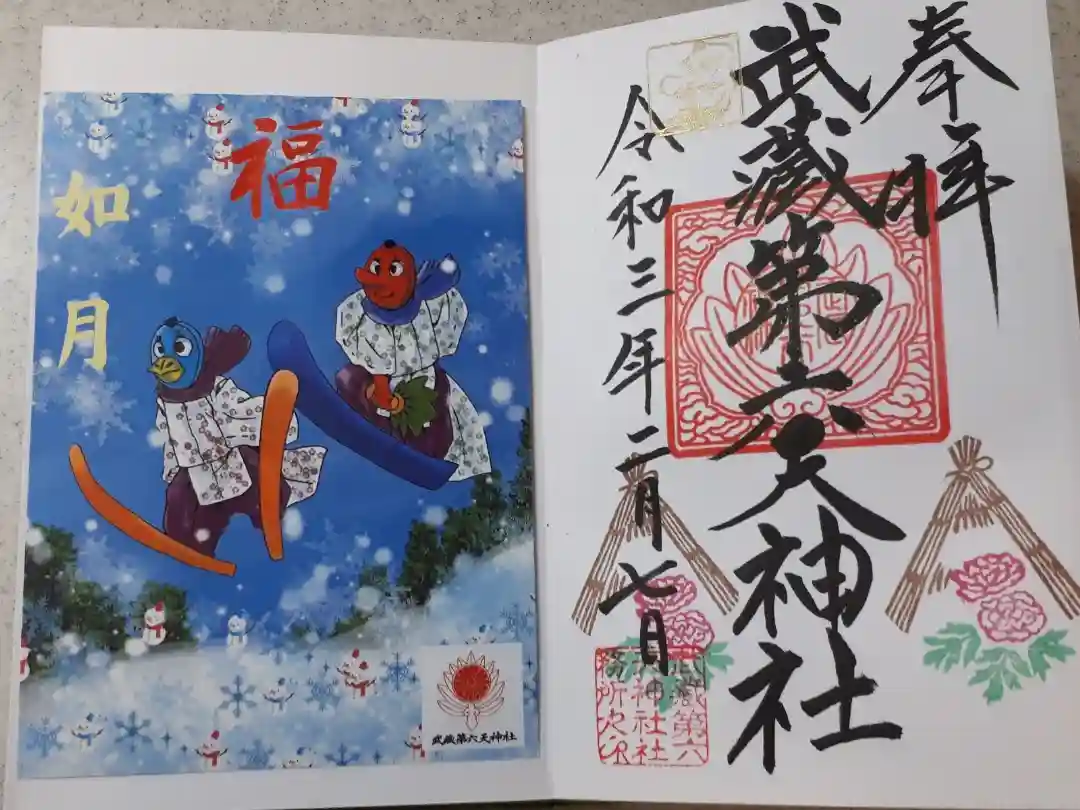 福
如月
武蔵第六天神社
奉拝
武蔵第六天神社
令和三年二月七日
武蔵第六
天神社社
務所之印